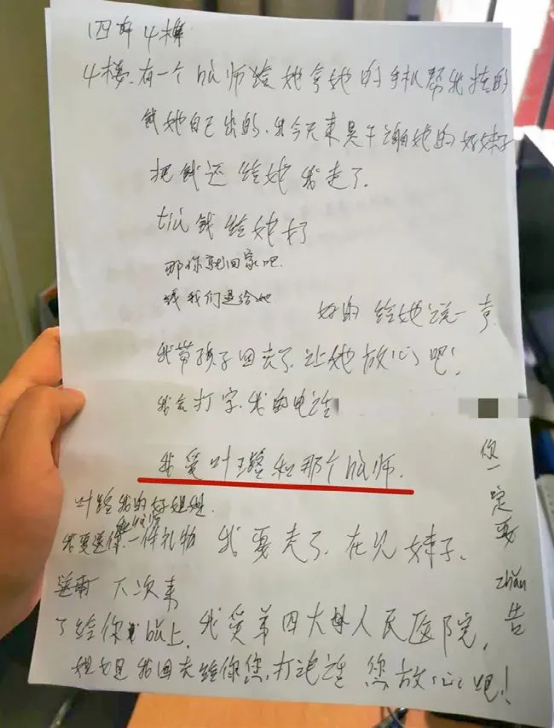 四所4楼
4楼.有一个hu师给她拿她的手机帮我挂的
钱她自己出的.我今天来是干谢她的好妹子
把钱还给她我走了.
tiu钱给她打
那你就回家吧.
钱我们还给她
好的 给她说一声
我带孩子回去了.让她放心吧!
我会打字.我的电话
我爱叶璐和那个hu师.
叶璐我的好姐姐.
我要送你一件礼物 我要走了.在见妹子.
下次来
了给你 上.我爱第四大 人民医院.
我回去给你您.打电话 您放心吧!
您一定要zhuan告